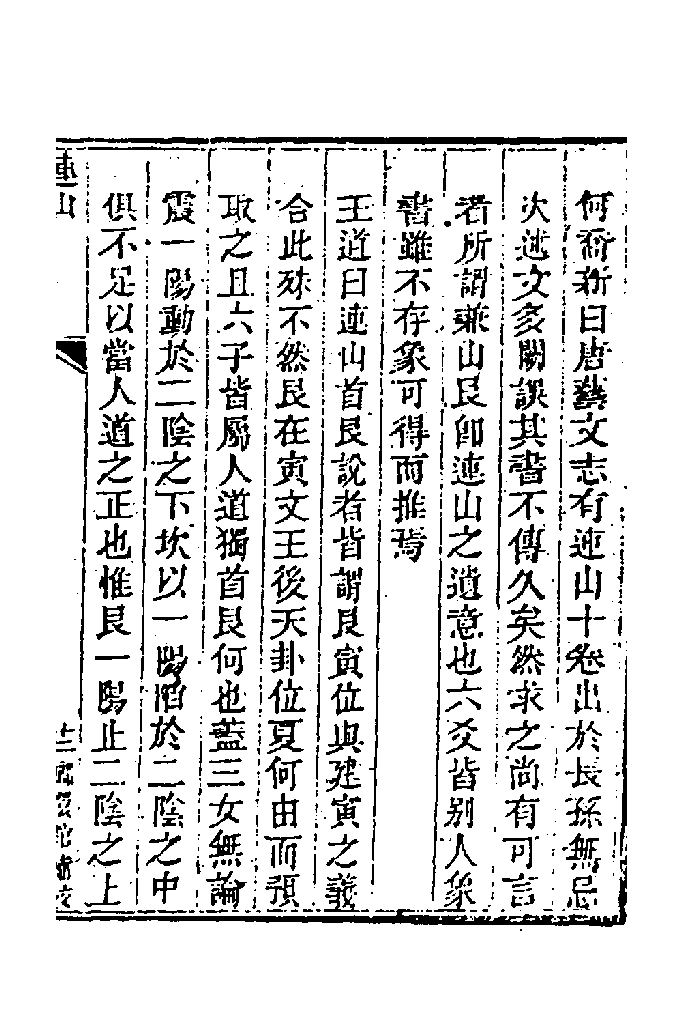 何喬新曰唐藝文志有連山十卷出於長孫無忌
次述文多闕誤其書不傳久矣然求之尚有可言
者所謂兼山艮卽連山之遺意也六爻皆別人象
書雖不存象可得而推焉
王道曰連山首艮說者皆謂艮寅位與建寅之義
合此殊不然艮在寅文王後天卦位夏何由而預
取之且六子皆屬人道獨首艮何也蓋三女無論
震一陽動於二陰之下坎以一陽陷於二陰之中
俱不足以當人道之正也惟艮一陽止二陰之上
連山